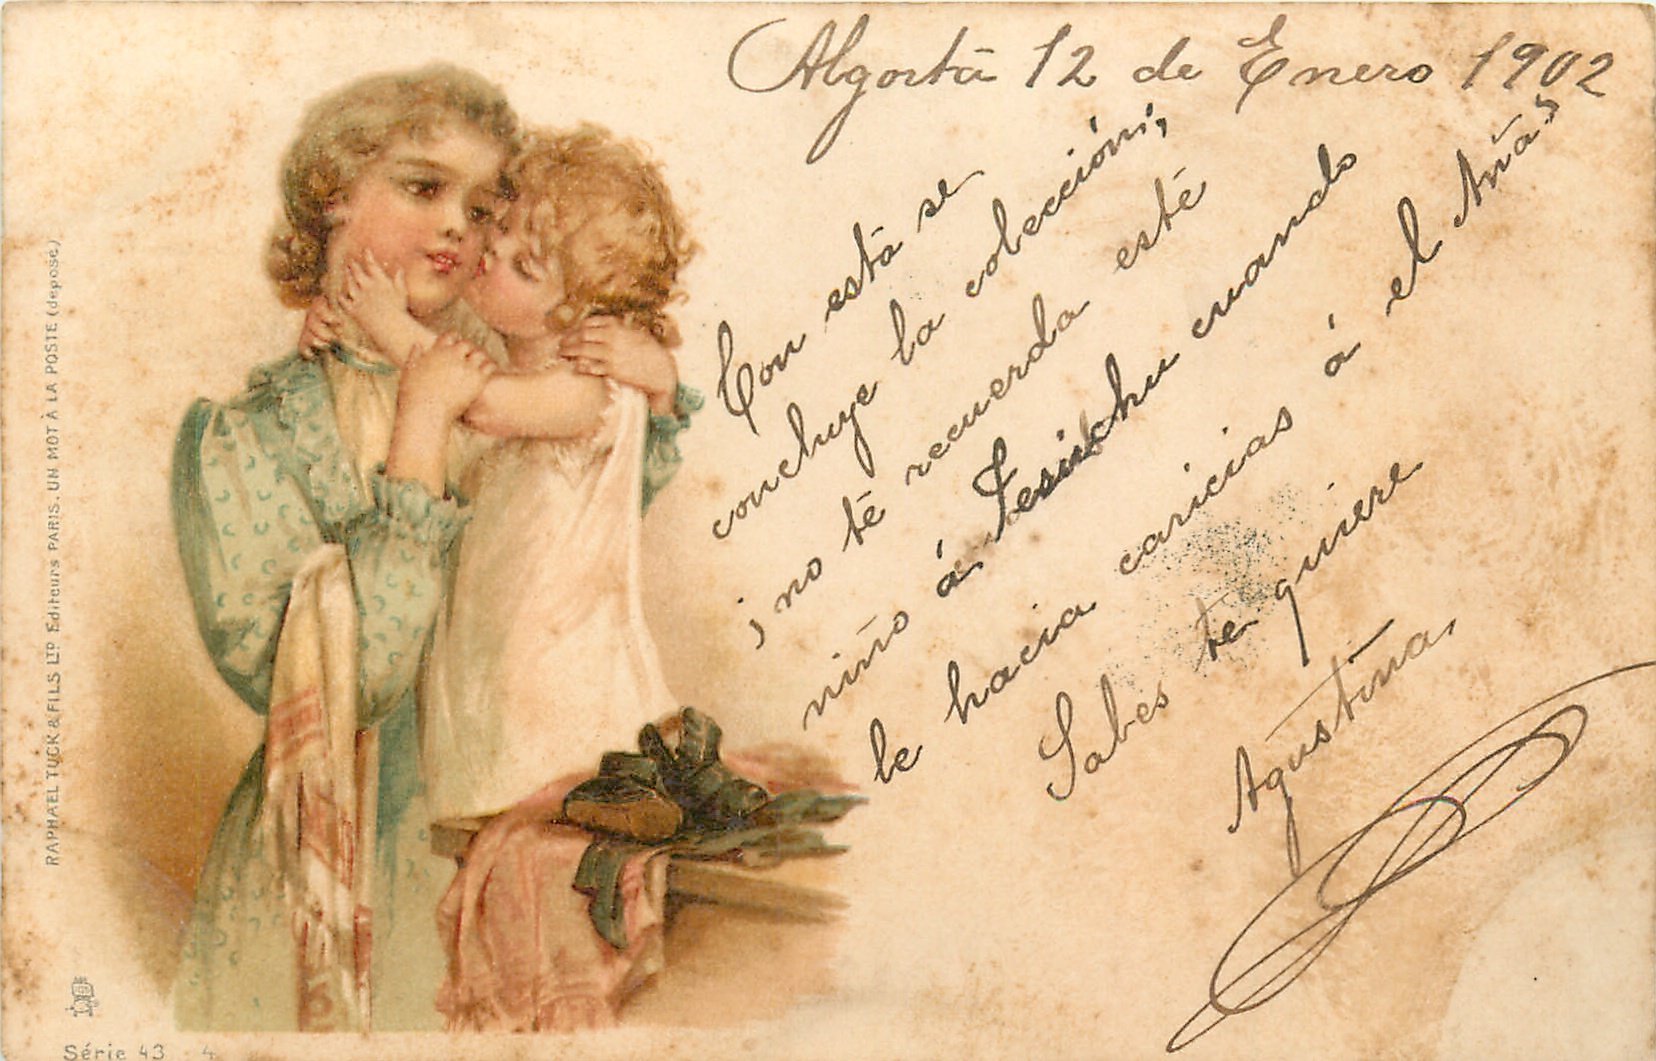 Algorta 12 de Enero 1902
Con està se
concluye la colección,
¿no tè recuerda estè
niño á Jesuschu cuando
le hacia caricias á el Aña?
Sabes te quiere
Agustina,
RAPHAEL TUCK & FILS LTD Editeurs PARIS. UN MOT À LA POSTE (déposé)
Série 43 4